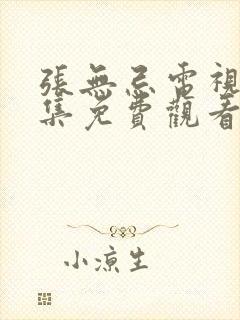 張無忌電視
集免費觀看
小涼生